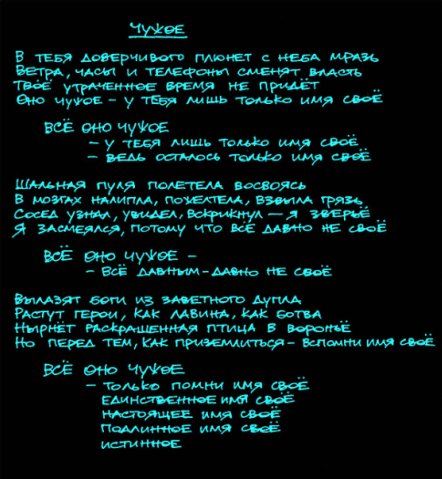 ЧУЖОЕ
В ТЕБЯ ДОВЕРЧИВОГО ПЛЮНЕТ С НЕБА МРАЗЬ
ВЕТРА, ЧАСЫ И ТЕЛЕФОНЫ СМЕНЯТ ВЛАСТЬ
ТВОЁ УТРАЧЕННОЕ ВРЕМЯ НЕ ПРИДЁТ
ОНО ЧУЖОЕ – У ТЕБЯ ЛИШЬ ТОЛЬКО ИМЯ СВОЁ
ВСЁ ОНО ЧУЖОЕ
– У ТЕБЯ ЛИШЬ ТОЛЬКО ИМЯ СВОЁ
– ВЕДЬ ОСТАЛОСЬ ТОЛЬКО ИМЯ СВОЁ
ШАЛЬНАЯ ПУЛЯ ПОЛЕТЕЛА ВОСВОЯСЬ
В МОЗГАХ НАЛИПЛА, ПОЖЕЛТЕЛА, ВЗВЫЛА ГРЯЗЬ
СОСЕД УЗНАЛ, УВИДЕЛ, ВСКРИКНУЛ – Я ЗВЕРЬЁ
Я ЗАСМЕЯЛСЯ, ПОТОМУ ЧТО ВСЁ ДАВНО НЕ СВОЁ
ВСЁ ОНО ЧУЖОЕ –
– ВСЁ ДАВНЫМ-ДАВНО НЕ СВОЁ
ВЫЛАЗЯТ БОГИ ИЗ ЗАВЕТНОГО ДУПЛА
РАСТУТ ГЕРОИ, КАК ЛАВИНА, КАК БОТВА
НЫРНЁТ РАСКРАШЕННАЯ ПТИЦА В ВОРОНЬЁ
НО ПЕРЕД ТЕМ, КАК ПРИЗЕМЛИТЬСЯ – ВСПОМНИ ИМЯ СВОЁ
ВСЁ ОНО ЧУЖОЕ
– ТОЛЬКО ПОМНИ ИМЯ СВОЁ
ЕДИНСТВЕННОЕ ИМЯ СВОЁ
НАСТОЯЩЕЕ ИМЯ СВОЁ
ПОДЛИННОЕ ИМЯ СВОЁ
ИСТИННОЕ